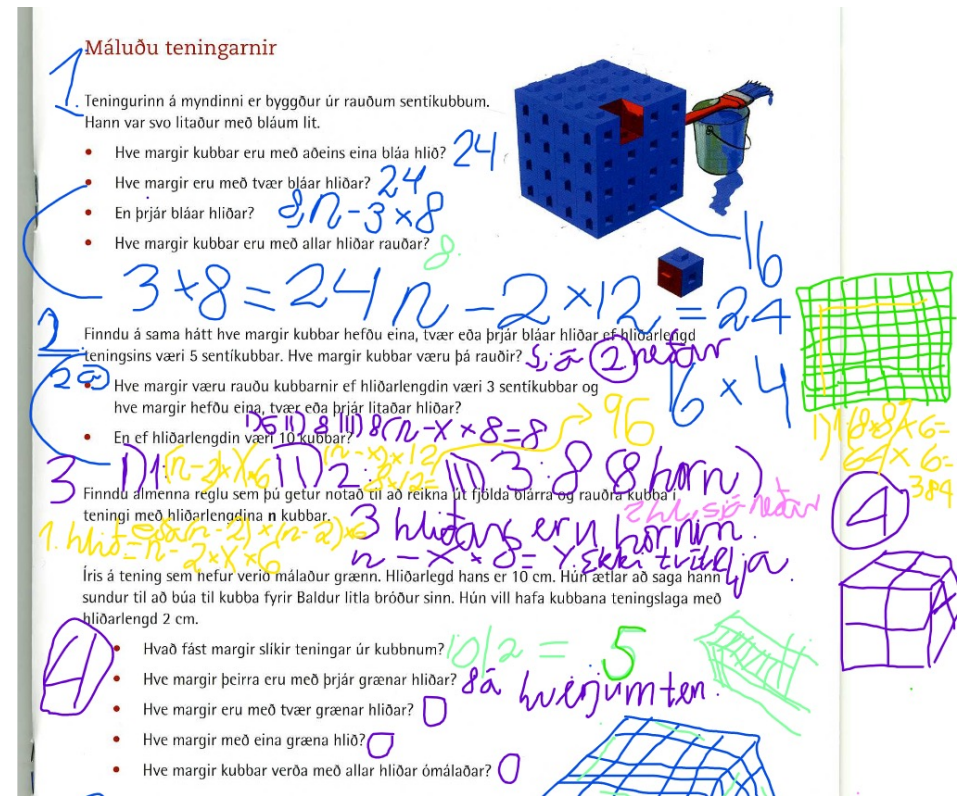 Máluðu teningarnir
1.
Teningurinn á myndinni er byggður úr rauðum sentikubbum.
Hann var svo litaður með bláum lit.
• Hve margir kubbar eru með aðeins eina bláa hlið? 24
• Hve margir eru með tvær bláar hliðar? 24
• En þrjár bláar hliðar? 8, n-3×8
• Hve margir kubbar eru með allar hliðar rauðar? 8.
16
3+8=24 n-2×12=24
2
Finndu á sama hátt hve margir kubbar hefðu eina, tvær eða þrjár bláar hliðar ef hliðarlengd
teningsins væri 5 sentikubbar. Hve margir kubbar væru þá rauðir? 2 neðar
6×4
2a
• Hve margir væru rauðu kubbarnir ef hliðarlengdin væri 3 sentikubbar og
hve margir hefðu eina, tvær eða þrjár litaðar hliðar?
96
I) 6 II) 8 III) 8 (n-x×8=8
• En ef hliðarlengdin væri 10 kubbar?
1) 1. 8×8×6=
64×6=
384
3 I) 1. (n-2)×x6 II) 2: (n-x)×12 8×12= III) 3: 8 (8 horn)
Finndu almenna reglu sem þú getur notað til að reikna út fjölda blárra og rauðra kubba í
teningi með hliðarlengdina n kubbar.
2 hl, sjá neðar
4
3 hliðar eru hornin.
1. hlið (n-2)×(n-2)×6
=n-2×x×6
n-x×8= Y. Ekki tvítelja.
Íris á tening sem hefur verið málaður grænn. Hliðarlegd hans er 10 cm. Hún ætlar að saga hann
sundur til að búa til kubba fyrir Baldur litla bróður sinn. Hún vill hafa kubbana teningslaga með
hliðarlengd 2 cm.
4
• Hvað fást margir slíkir teningar úr kubbnum? 10/2 = 5
• Hve margir þeirra eru með þrjár grænar hliðar? 8 á hverjum ten.
• Hve margir eru með tvær grænar hliðar? 0
• Hve margir með eina græna hlið? 0
• Hve margir kubbar verða með allar hliðar ómálaðar? 0